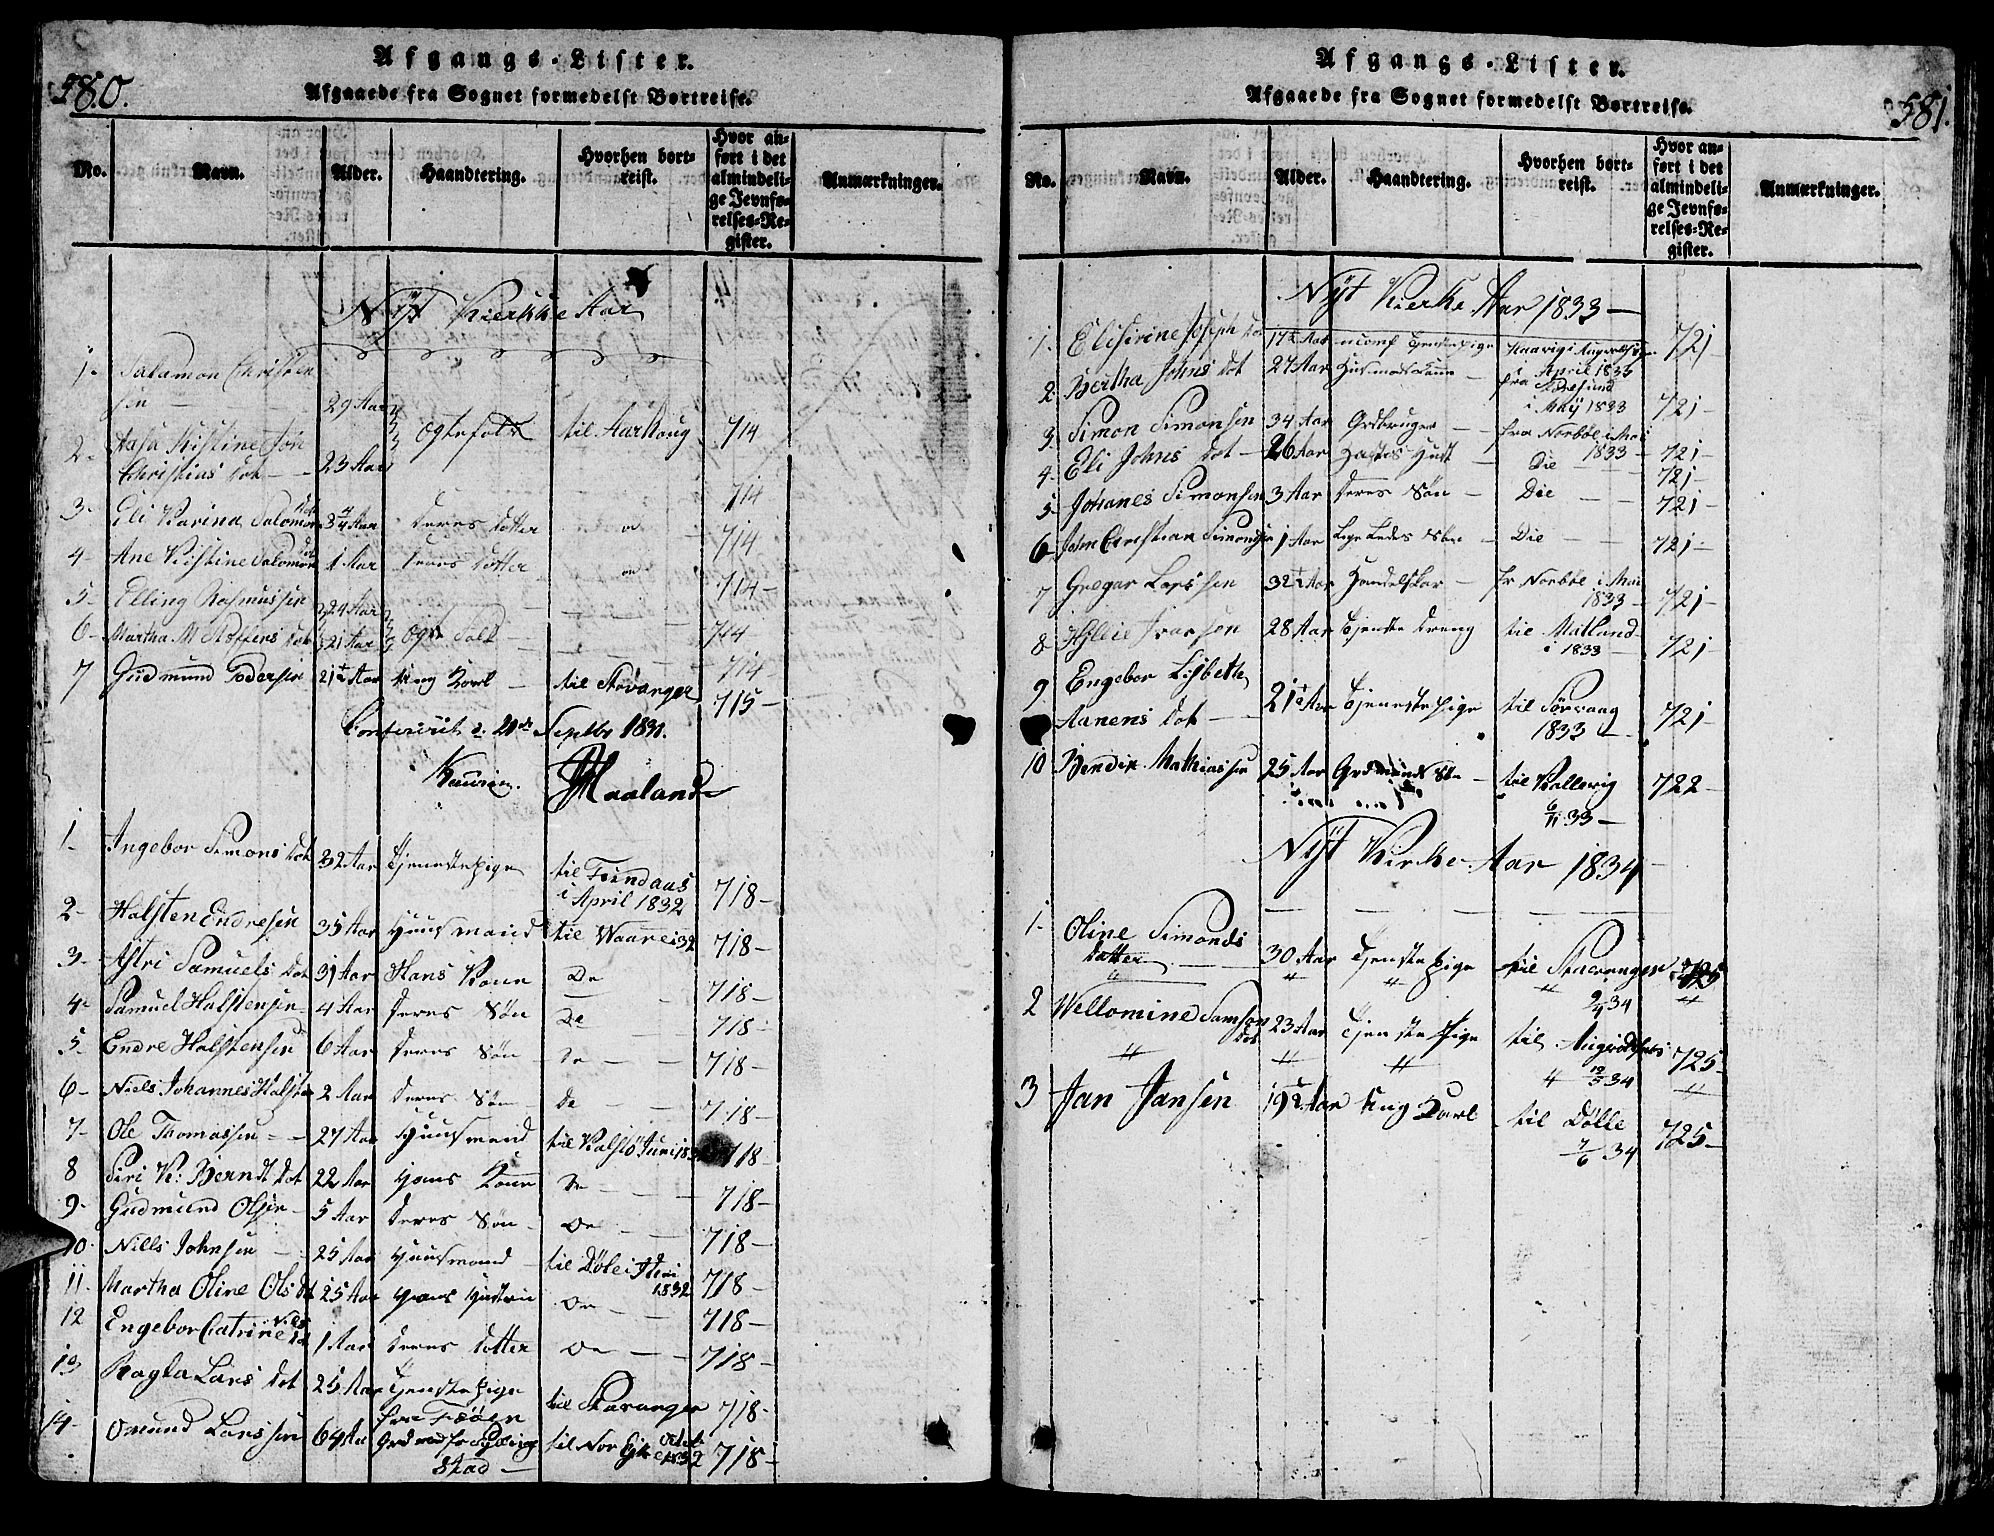 580.
Afgangs-Lister.
Afgaaede fra Sognet formedelst Bortreise.
No. Navn. Alder. Haandtering. Hvorhen bortreist. Hvor anført i det almindelige Jevnførelses-Register. Anmærkninger.
Nÿt Kierkke Aar
1- Salamon Christen
sen — 29 Aar
Ogtefolk til Aarhoug 714
2- Aasa Kistine Jon
Christens Dot — 23 Aar 714
3- Eli Karina Salomons Dot 3/4 Aar Deres Dotter do 714
4- Ane Kistine Salomons Dot 1 Aar Deres Dotter do 714-
5- Elling Rasmussen 24 Aar
6- Martha M Stoffers Dot 21 Aar Ogte Folk — 714
714-
7 Gudmund Podersen 21½ Aar Ung Karl — til Stavanger 715-
Conferirit d. 21de Septbr 1831.
Maaland
1- Ingebor Simons Dot 32 Aar Tjenestepige til Findaas
i April 1832 718-
2- Halsten Endresen 35 Aar Huusmand til Waare i 32 718-
3- Astri Samuels Dot 31 Aar Hans Kone De 718-
4- Samuel Halstensen 4 Aar Deres Søn De 718-
5- Endre Halstensen 6 Aar Deres Søn De — 718-
6- Niels Johannes Halsten 2 Aar Deres Søn De 718-
7- Ole Thomassen — 27 Aar Huusmand til Kalstö Juni 18 718-
8 Siri K: Berndt Dot 22 Aar Hans Kone De — 718-
9- Gudmund Olsen — 5 Aar Deres Søn — De — 718-
10- Nills Johnsen — 25 Aar Huusmand til Döle i
1832 718-
11- Martha Oline Ols Dt 25 Aar Hans Hustrue De — 718-
12 Engebor Catrine Nils Dot 1 Aar Deres Dotter De — 718-
13 Ragla Lars Dot 25 Aar Tjenestepige
fra Fæöen til Stavanger 718-
14- Omund Larssen 64 Aar
Stad — til Nor 1832 718-
581.
Afgangs-Lister.
Afgaaede fra Sognet formedelst Bortreise.
No. Navn. Alder. Haandtering. Hvorhen bortreist. Hvor anført i det almindelige Jevnførelses-Register. Anmærkninger.
Nÿt Kierke Aar 1833 —
1- Elisirine Joseph Dot 17½ Aar Tjenstepige
April 1833 721-
2- Bertha Johns Dot 27 Aar Huusmands Kone — fra
i Maÿ 1833 721-
3- Simon Simonsen 34 Aar Grdbruger — fra Norböe i Mai
1833 — 721-
4- Eli Johns Dot — 26 Aar Hustr — Die — 721-
5- Johanes Simonsen 3 Aar Deres Søn — Die — 721-
6 John Christian Simonsen 1 Aar Ligeledes Søn — Die — 721-
7 Gregar Larssen 32½ Aar Handelskar — fr Norböe i Mai
1833 — 721-
8 Iversen 28 Aar Tjeneste Dreng til Matland
i 1833 — 721-
9 Engebor Lisbeth
Aanens Dot — 21½ Aar Tjenestepige til Sörvaag
1833 721-
10 Bendix Mathiassen 25 Aar Grdmands Søn — til Kallevig
6/11 33 — 722-
Nÿt Kirke Aar 1834
1- Oline Simonds
Datter — 30 Aar Tjenstepige til Stavanger
9/4 34 725
2 Wellomine Samson Dot 23 Aar Tjenste Pige til
" 12/5 34 725-
3 Jan Jansen 19½ Aar Ung Karl til Dölle
7/6 34 725-